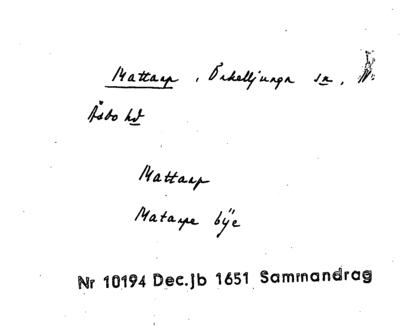 Mattarp, Örkelljunga sn, N.
Åsbo hd
Mattarp
Matarpe bÿe
Nr 10194 Dec.jb 1651 Sammandrag